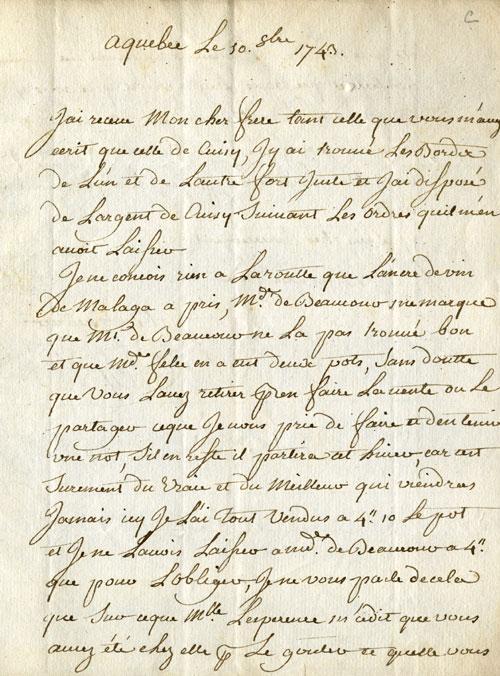 aquebec Le 30. 9bre 1743.
J'ai receue Mon cher frere tant celle que vous m'avez
ecrit que celle de Cuisy, J'y ai trouvé Les Bordx
de L'un et de Lautre fort Juste et J'ai disposé
de Largent de Cuisy Suivant Les ordres quil m'en
avoit Laissez
Je ne concois rien a La routte que L'ancre de vin
de Malaga a pris, Mde. de Beaucourt me marque
que Mr. de Beaucourt ne La pas trouvé bon
et que Mde. en a eut deux pots, Sans doutte
que Vous L'avez retirer pr en faire La vente ou Le
partager ceque Je vous prie de faire et den tenir
une not, S'il en reste il partira cet hiver, car cest
Surement du Vraie et du Meilleur qui viendras
Jamais icy Je L'ai tout vendus a 4" 10 Le pot
et Je ne Lavois Laissez a mde. de Beaucourt a 4"
que pour Lobliger, Je ne vous parle de cela
que Sur ceque Mlle Lesperence m'a dit que vous
aviez été chez elle pr Le gouter et quelle vous